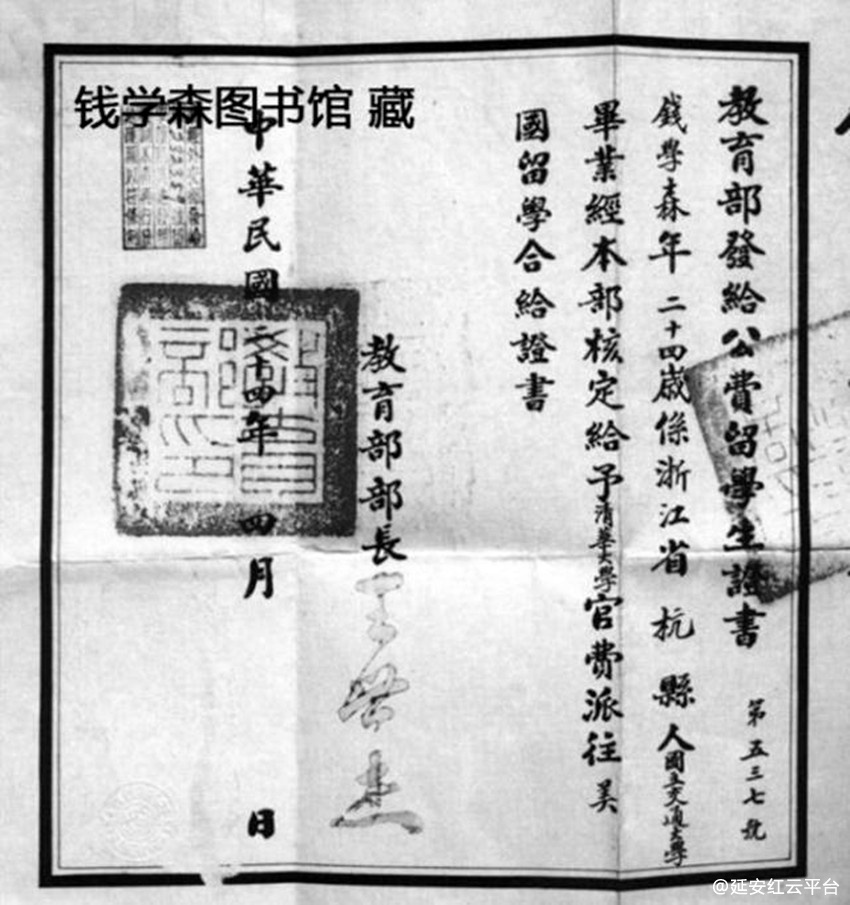 钱学森图书馆 藏
教育部發給公費留學生證書
第五三七號
錢學森年二十四歲係浙江省杭縣人國立交通大學
畢業經本部核定給予清華大學官費派往美
國留學合給證書
教育部部長
王世杰
中華民國二十四年四月 日
教育部印
@延安红云平台